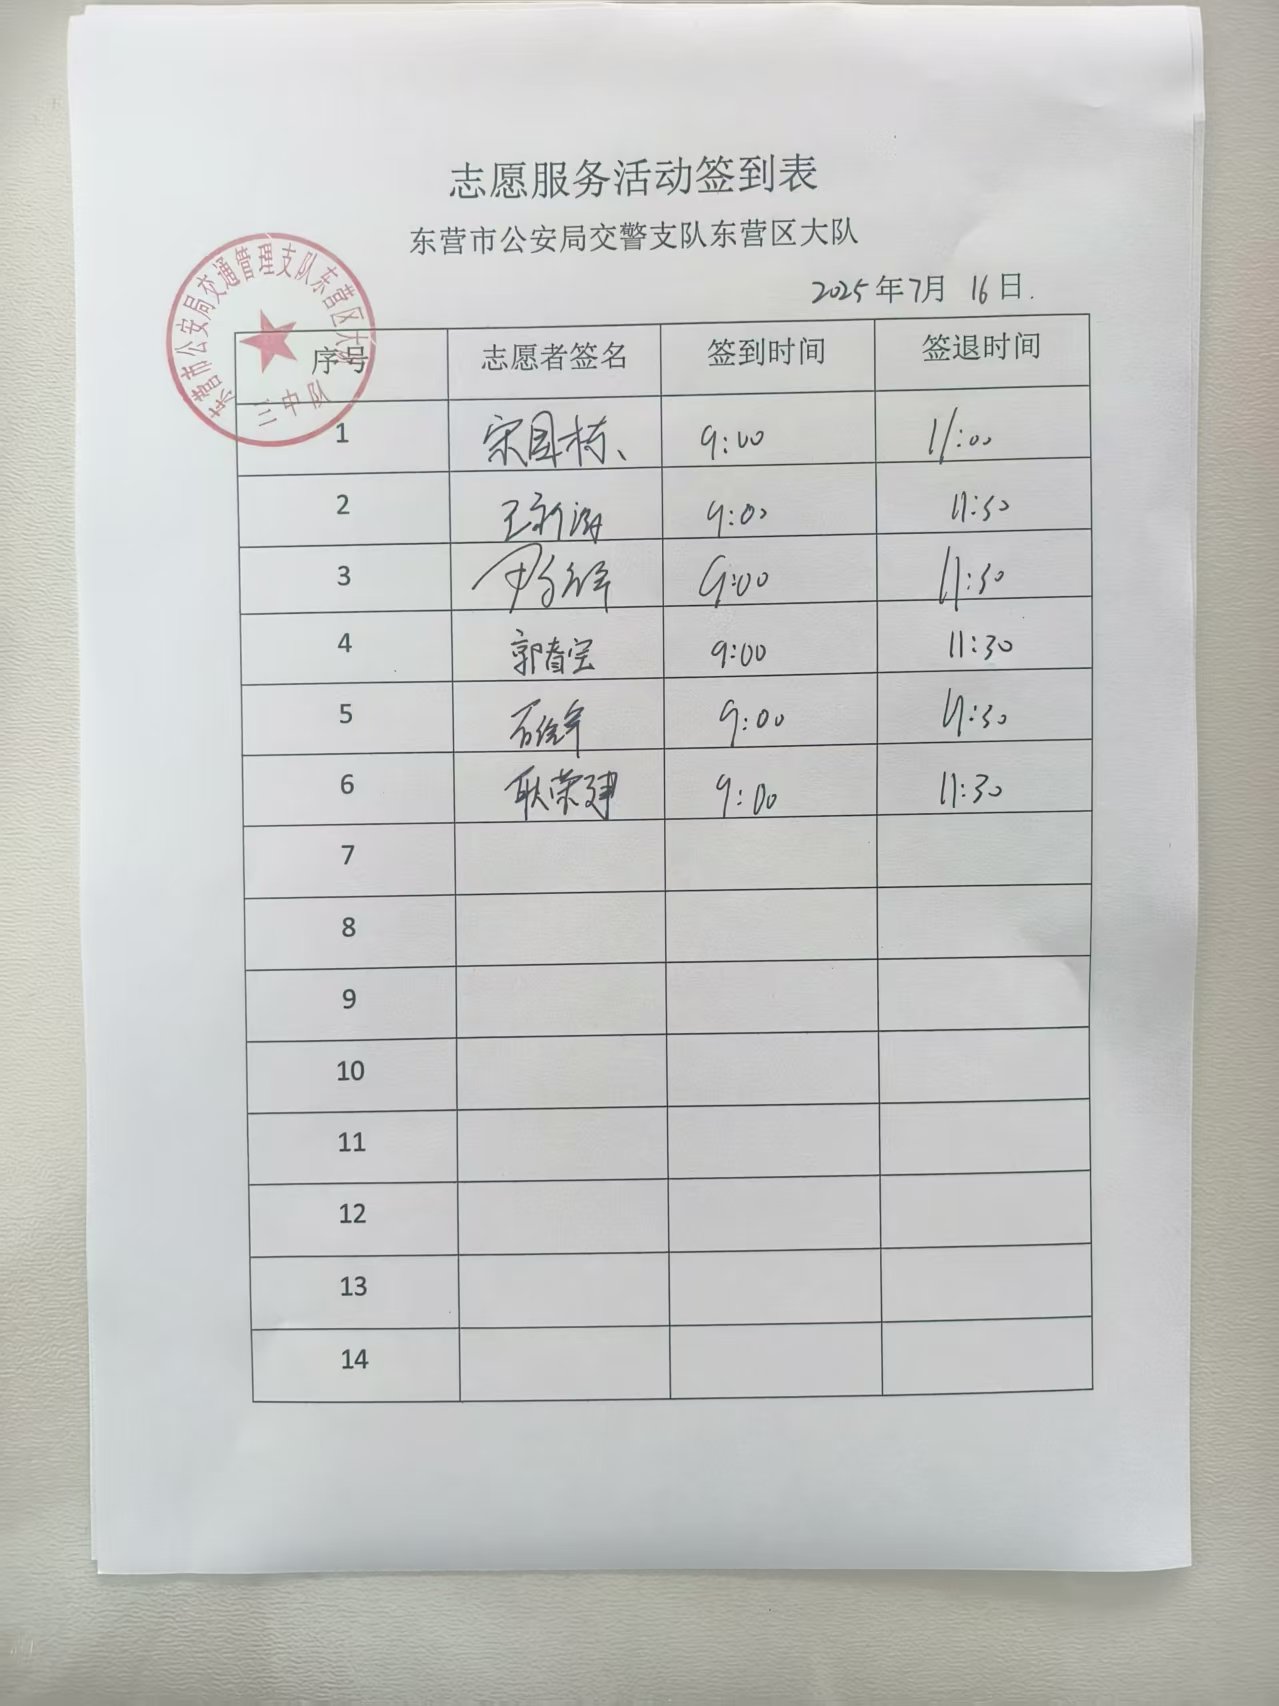 志愿服务活动签到表
东营市公安局交警支队东营区大队
2025年7月 16日.
东营市公安局交通管理支队东营区大队
三中队
序号 志愿者签名 签到时间 签退时间
1 宋国栋、 9:00 11:00
2 王新 9:00 11:30
3 9:00 11:30
4 郭春宝 9:00 11:30
5 9:00 11:30
6 耿荣建 9:00 11:30
7
8
9
10
11
12
13
14